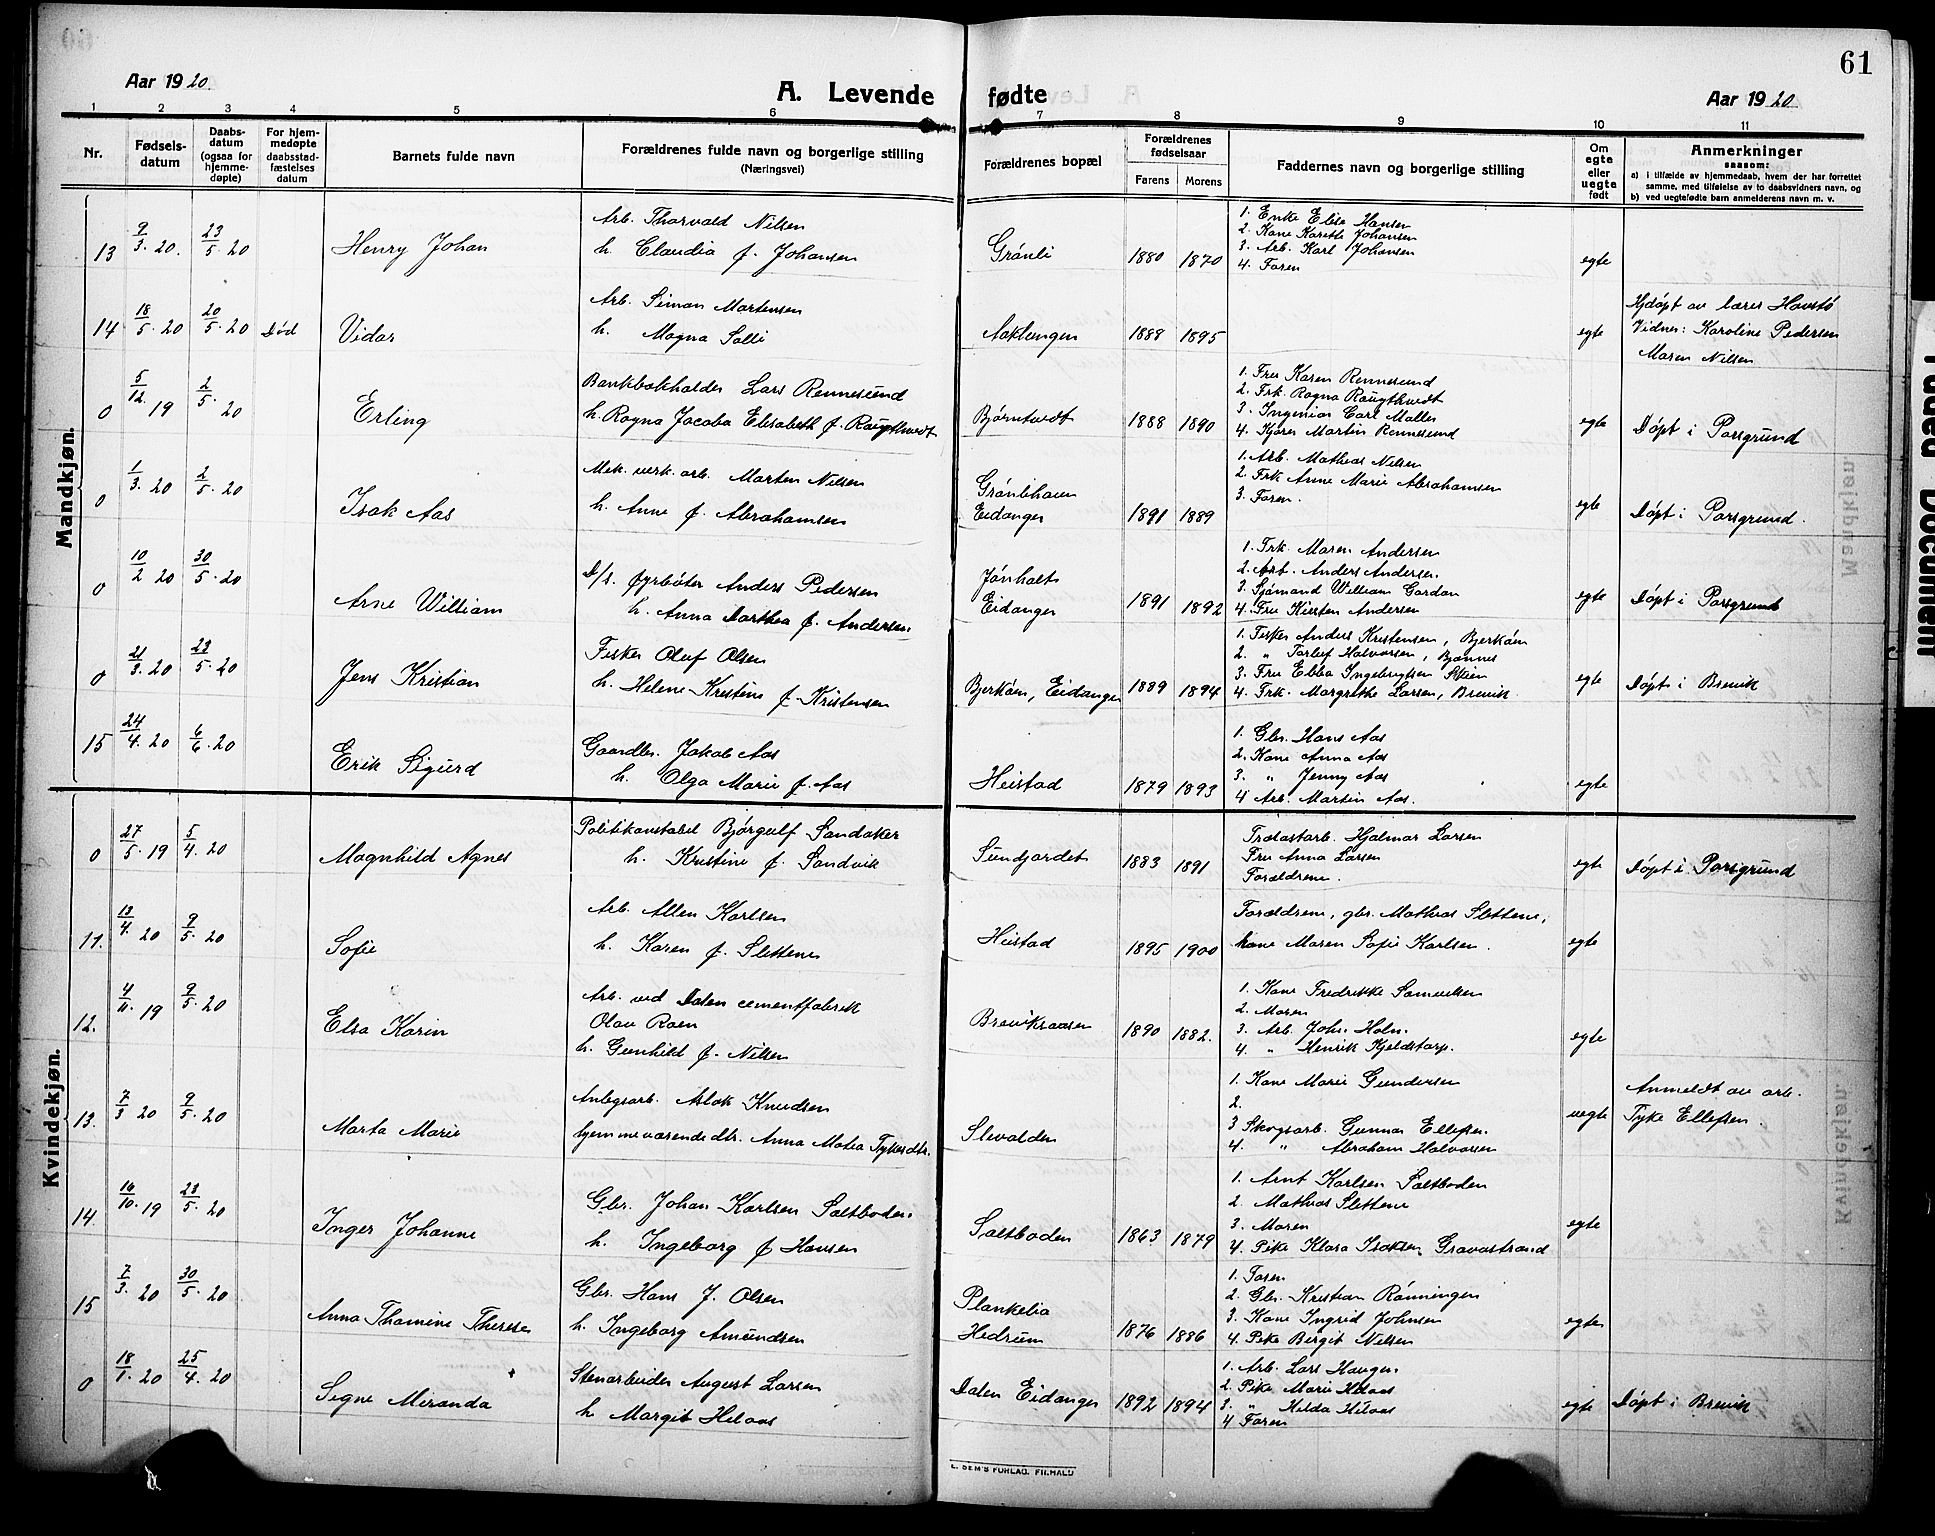 61
Aar 1920.
A. Levende fødte
Aar 1920
1 2 3 4 5 6 7 8 9 10 11
Nr.
Fødselsdatum
Daabsdatum (ogsaa for hjemmedøpte)
For hjemmedøpte daabsstadfæstelses datum
Barnets fulde navn
Forældrenes fulde navn og borgerlige stilling
(Næringsvei)
Forældrenes bopæl
Forældrenes fødselsaar
Farens Morens
Faddernes navn og borgerlige stilling
Om egte eller uegte født
Anmerkninger
saasom:
a) i tilfælde av hjemmedaab, hvem der har forrettet samme, med tilføielse av to daabsvidners navn, og
b) ved uegtefødte barn anmelderens navn m. v.
Mandkjøn.
13 9/3.20. 23/5.20 Henry Johan
Arb. Thorvald Nilsen
h. Claudia f. Johansen
Grönli 1880 1870
1. Enke Elise Hansen
2. Kone Karethe Johansen
3. Arb. Karl Johansen
4. Faren
egte
14 18/5.20 20/5.20 Död Vidar
Arb. Simon Martensen
h. Magna Solli
Aaklungen 1888 1895
egte
Hjdöpt av lærer Havstö
Vidner: Karoline Pedersen
Maren Nilsen
0 5/12 19 2/5.20 Erling
Bankbokholder Lars Rennesund
h. Ragna Jacoba Elisabeth f. Raugthvedt
Björntvedt 1888 1890
1. Fru Karen Rennesund
2. Frk. Ragna Raugthvedt
3. Ingeniör Carl Møller
4. Kjører Martin Rennesund
egte
Döpt i Porsgrund
0 1/3.20 2/5.20 Isak Aas
Mek. verk. arb. Marten Nilsen
h. Anne f. Abrahamsen
Grönlihauen
Eidanger 1891 1889
1. Arb. Mathias Nilsen
2. Frk Anne Marie Abrahamsen
3. Faren.
egte
Döpt i Porsgrund.
0 10/2 20 30/5.20 Arne William
D/s. fyrböter Anders Pedersen
h. Anna Dorthea f. Andersen
Jönholt
Eidanger 1891 1892
1. Frk. Maren Andersen
2. Arb. Anders Andersen.
3. Sjömand William Gordon
4. Fru Kirsten Andersen
egte
Döpt i Porsgrund
0 21/3.20 23/5.20 Jens Kristian
Fisker Oluf Olsen
h. Helene Kristine f. Kristensen
Bjerköen, Eidanger 1889 1894
1. Fisker Anders Kristensen, Bjerköen
2. " Torleif Halvorsen, Bjønnes
3. Fru Ebba Ingebrigtsen Skien
4. Frk. Margrethe Larsen, Brevik.
egte
Döpt i Brevik
15 24/4.20 6/6.20 Erik Sigurd
Gaardbr. Jakob Aas
h. Olga Marie f. Aas
Heistad 1879 1893
1. Gbr. Hans Aas
2. Kone Anna Aas
3. " Jenny Aas
4 Arb. Martin Aas.
egte
Kvindekjøn.
0 27/5.19 5/4.20 Magnhild Agnes
Politikonstabel Bjørgulf Sandaker
h. Kristine f. Sandvik
Sundjordet 1883 1891
Trælastarb. Hjalmar Larsen
Fru Anna Larsen
Forældrene.
egte
Döpt i Porsgrund
11. 13/4.20 9/5.20 Sofie
Arb. Allen Karlsen
h. Karen f. Slettene
Heistad 1895 1900
Forældrene, gbr. Mathias Slettene,
kone Maren Sofie Karlsen.
egte
12. 4/11.19 9/5.20 Elsa Karin
Arb. ved Dalen cementfabrik
Olav Roen
h. Gunhild f. Nilsen
Brevikraasen 1890 1882.
1. Kone Fredrikke Samuelsen
2. Moren
3. Arb. Joh. Holm.
4. " Henrik Kjeldstorp.
egte
13. 7/3 20 9/5.20 Marta Marie
Anlegsarb. Aslak Knudsen
hjemmeværende dtr. Anna Matea Tykesdtr.
Slevolden
1. Kone Marie Gundersen
2.
3 Skogsarb. Gunnar Ellefsen
4. " Abraham Halvorsen
uegte
Anmeldt av arb.
Tyke Ellefsen.
14. 16/10.19 23/5.20 Inger Johanne
Gbr. Johan Karlsen Saltboden
h. Ingeborg f Hansen
Saltboden 1863 1879
1. Arnt Karlsen Saltboden
2. Mathias Slettene
3. Moren
4. Pike Klara Isaksen Gravastrand
egte
15 7/3.20 30/5.20 Anna Thomine Therese
Gbr. Hans J. Olsen
h. Ingeborg Amundsen
Plankelia
Hedrum 1876 1886
1. Faren
2. Gbr. Kristian Rönningen
3. Kone Ingrid Johnsen
4. Pike Bergit Nilsen
egte
0 18/1.20 25/4.20 Signe Miranda
Stenarbeider August Larsen
h. Margit Heloos
Dalen Eidanger 1892 1894
1. Arb. Lars Haugen
2. Pike Marie Heloos
3. " Hilda Heloos
4 Faren
egte
Döpt i Brevik
E. SEM'S FORLAG, FR.HALD